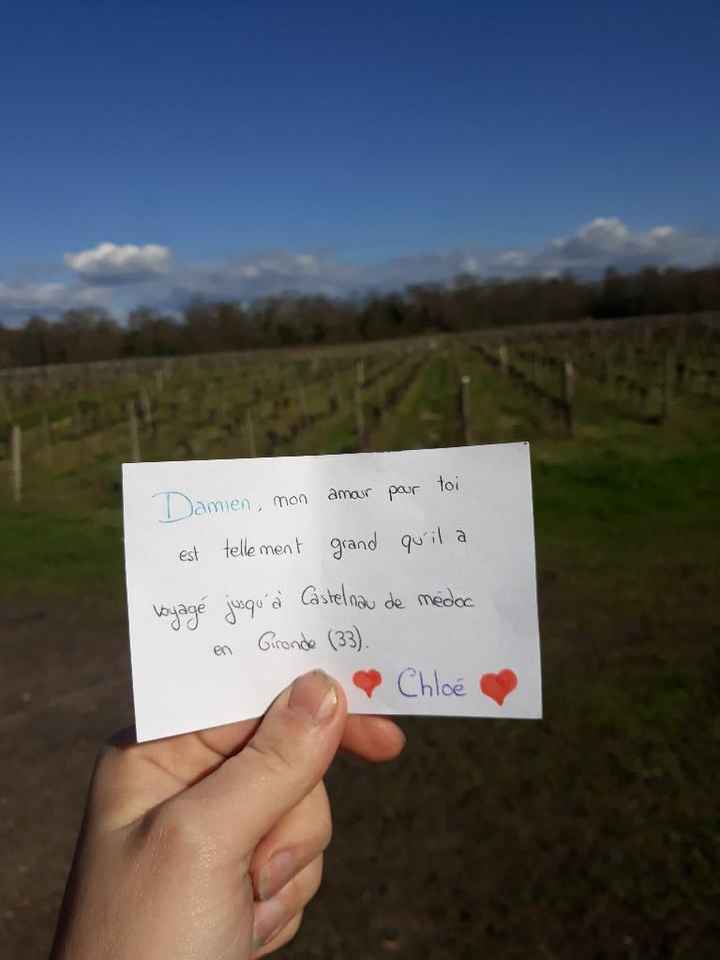 Damien, mon amour pour toi
est tellement grand qu'il a
voyagé jusqu'à Castelnau de médoc
en Gironde (33).
Chloé